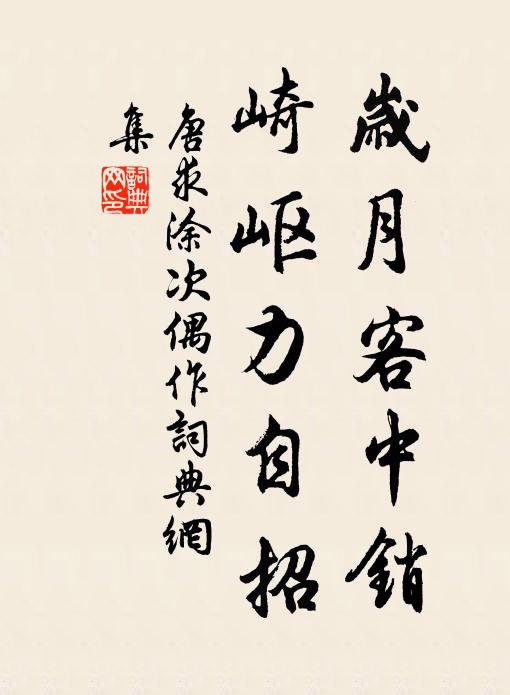 歲月客中銷
崎岖力自招
唐求涂次偶作詞典網
集
詞典
网印